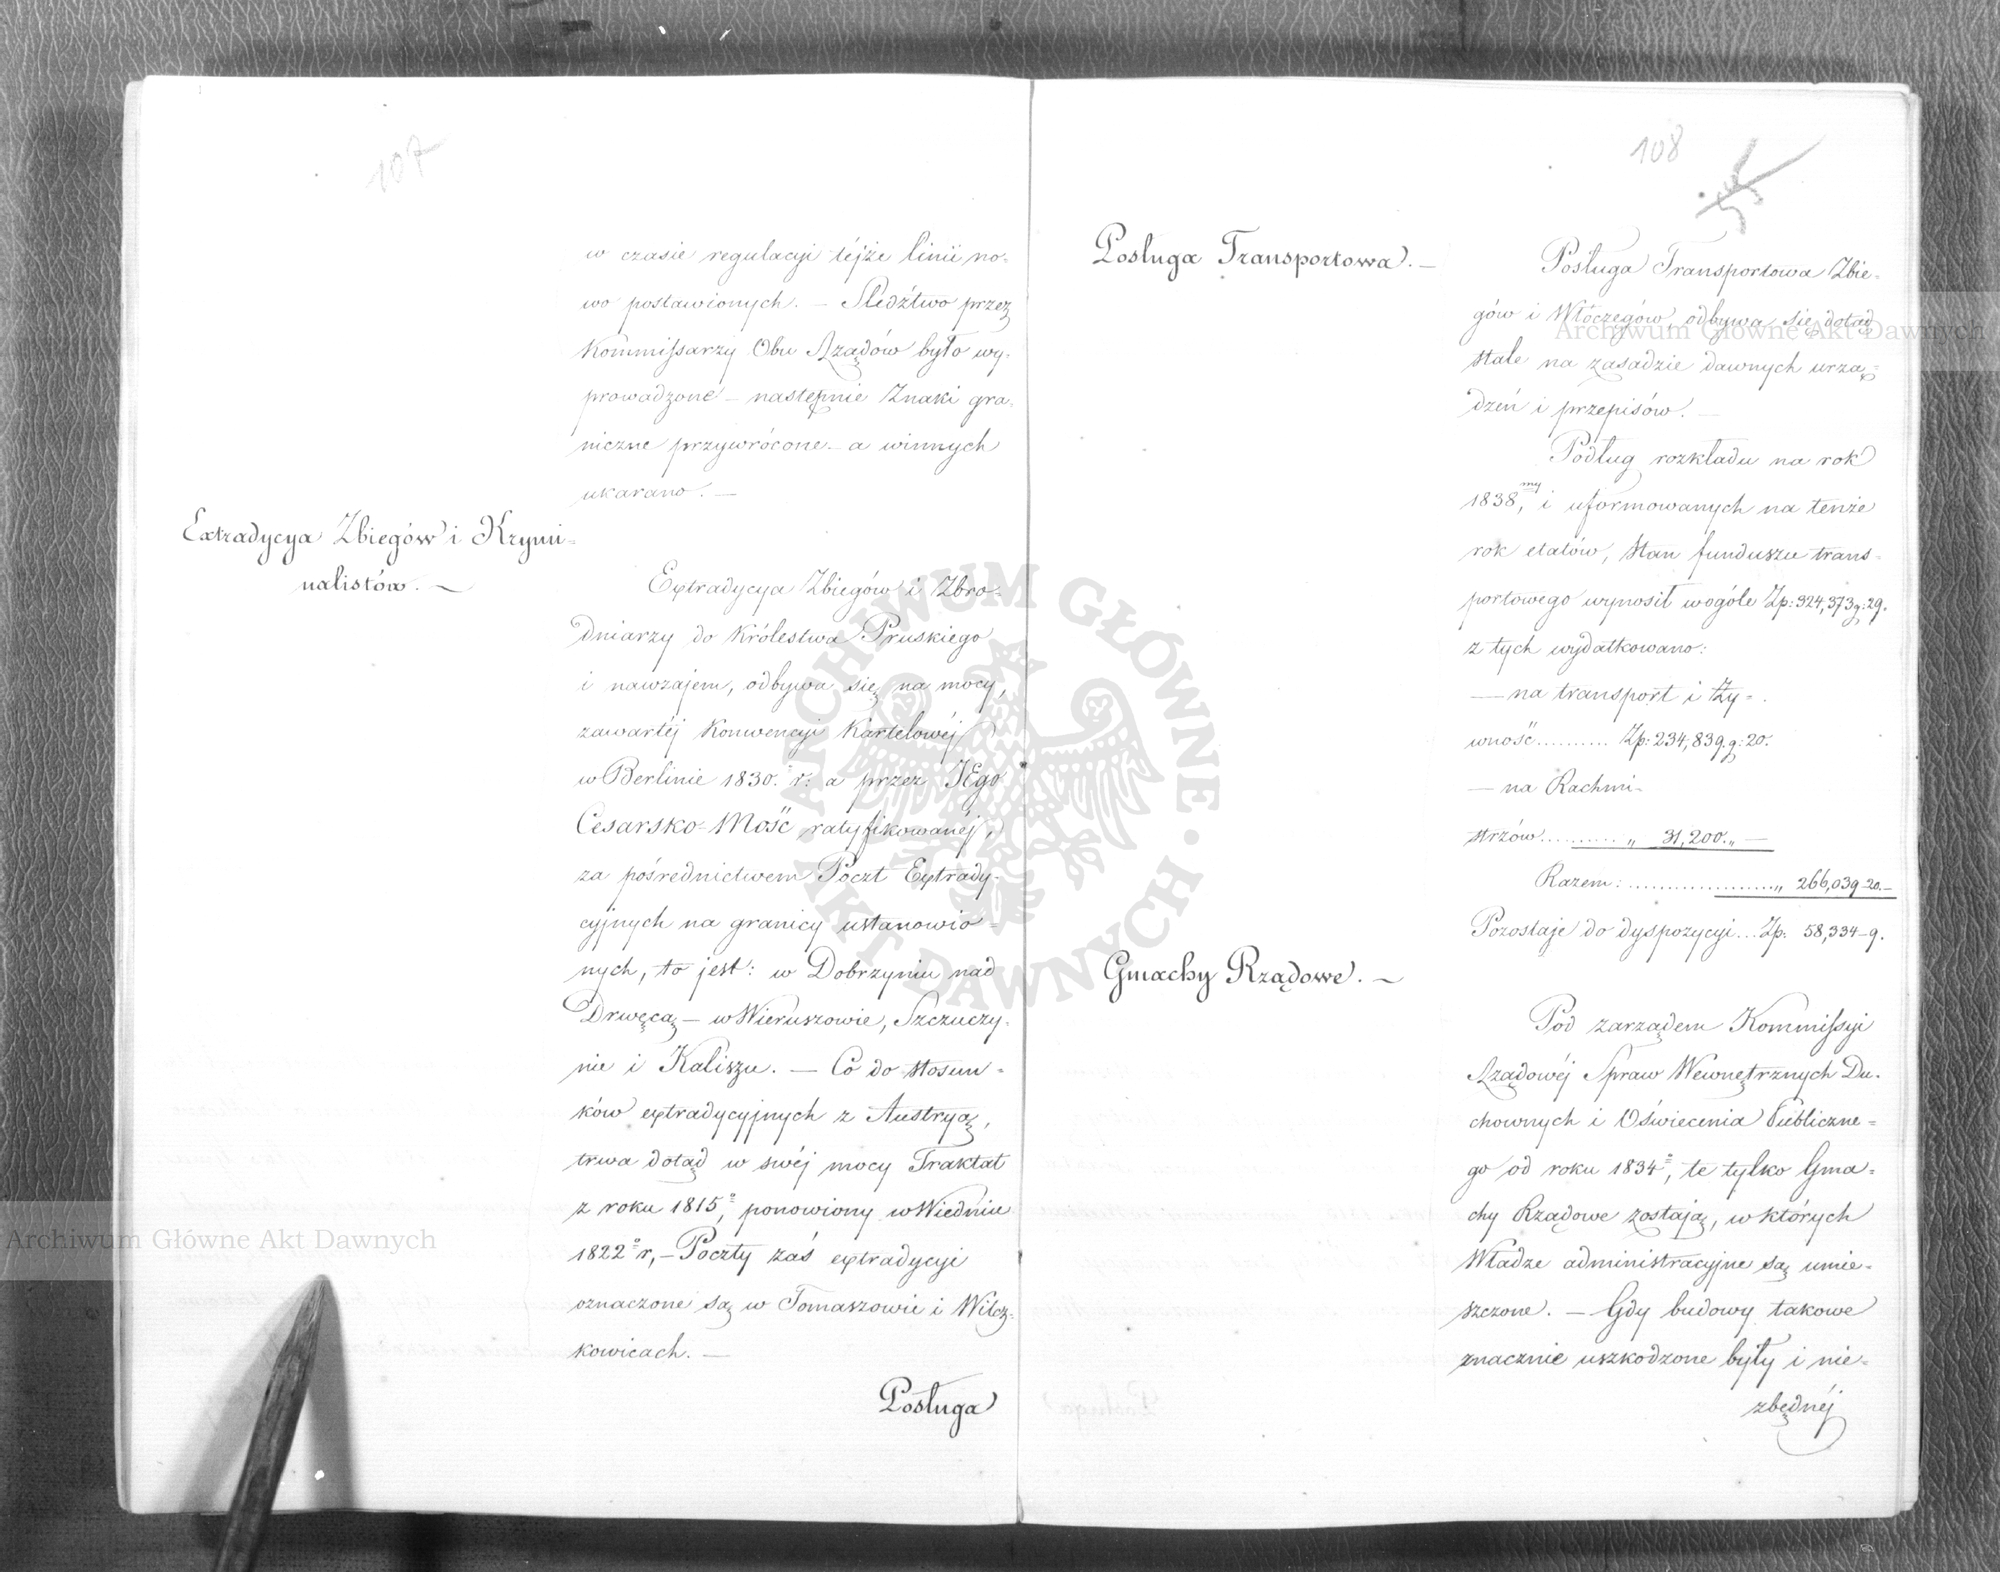 107
w czasie regulacyi téjże linii no-
wo postawionych. — Śledźtwo przez
Kommissarzy Obu Rządów było wy-
prowadzone — następnie Znaki gra-
niczne przywrócone — a winnych
ukarano. —
Extradycya Zbiegów i Krymi-
nalistów. —
Extradycya Zbiegów i Zbro-
dniarzy do Królestwa Pruskiego
i nawzajem, odbywa się na mocy,
zawartéj Konwencyi Kartelowéj
w Berlinie 1830.° r: a przez JEgo
Cesarsko-Mość ratyfikowanéj,
za pośrednictwem Poczt Extrady-
cyjnych na granicy ustanowio-
nych, to jest: w Dobrzyniu nad
Drwęcą — w Wieruszowie, Szczuczy-
nie i Kaliszu. — Co do stosun-
ków extradycyjnych z Austryą,
trwa dotąd w swéj mocy Traktat
z roku 1815,° ponowiony w Wiedniu
1822° r, — Poczty zaś extradycyi
oznaczone są w Tomaszowie i Wilcz-
kowicach. —
Posługa
108
Posługa Transportowa. —
Posługa Transportowa Zbie-
gów i Włóczęgów, odbywa się dotąd
stale na zasadzie dawnych urzą-
dzeń i przepisów. —
Podług rozkładu na rok
1838,my i uformowanych na tenże
rok etatów, stan funduszu trans-
portowego wynosił wogóle Zp: 324,373 g: 29.
z tych wydatkowano:
— na transport i ży-
wność.......... Zp: 234,839. g: 20.
— na Rachmi-
strzów.......... „ 31,200. „ —
Razem: ...................„ 266,039 - 20. —
Pozostaje do dyspozycyi... Zp: 58,334 - 9.
Gmachy Rządowe. —
Pod zarządem Kommissyi
Rządowéj Spraw Wewnętrznych Du-
chownych i Oświecenia Publiczne-
go od roku 1834°, te tylko Gma-
chy Rządowe zostają, w których
Władze administracyjne są umie-
szczone. — Gdy budowy takowe
znacznie uszkodzone były i nie-
zbędnéj
Archiwum Główne Akt Dawnych
Archiwum Główne Akt Dawnych
ARCHIWUM GŁÓWNE · AKT DAWNYCH ·